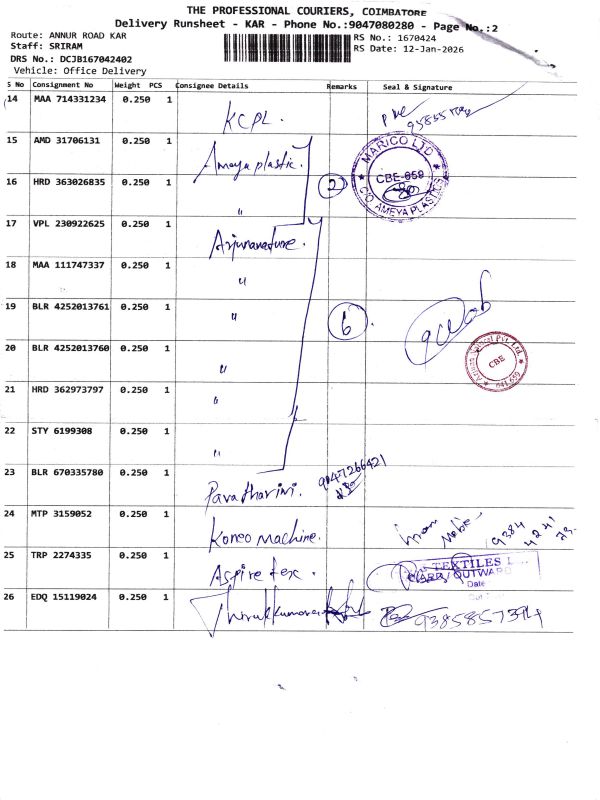 THE PROFESSIONAL COURIERS, COIMBATORE
Delivery Runsheet - KAR - Phone No.:9047080280 - Page No.:2
Route: ANNUR ROAD KAR
RS No.: 1670424
Staff: SRIRAM
RS Date: 12-Jan-2026
DRS No.: DCJB167042402
Vehicle: Office Delivery
S No Consignment No Weight PCS Consignee Details Remarks Seal & Signature
14 MAA 714331234 0.250 1 KCPL.
15 AMD 31706131 0.250 1 Ameya plastic.
MARICO LTD
CBE-659
C/O. AMEYA PLASTICS
16 HRD 363026835 0.250 1 " 2
17 VPL 230922625 0.250 1
18 MAA 111747337 0.250 1 "
19 BLR 4252013761 0.250 1 " 6
20 BLR 4252013760 0.250 1 "
CBE
641 659
21 HRD 362973797 0.250 1 "
22 STY 6199308 0.250 1 "
23 BLR 670335780 0.250 1 9047266421
24 MTP 3159052 0.250 1 Koneo machine. 9384
25 TRP 2274335 0.250 1 Aspire tex.
TEXTILES
OUTWARD
Date
26 EDQ 15119024 0.250 1